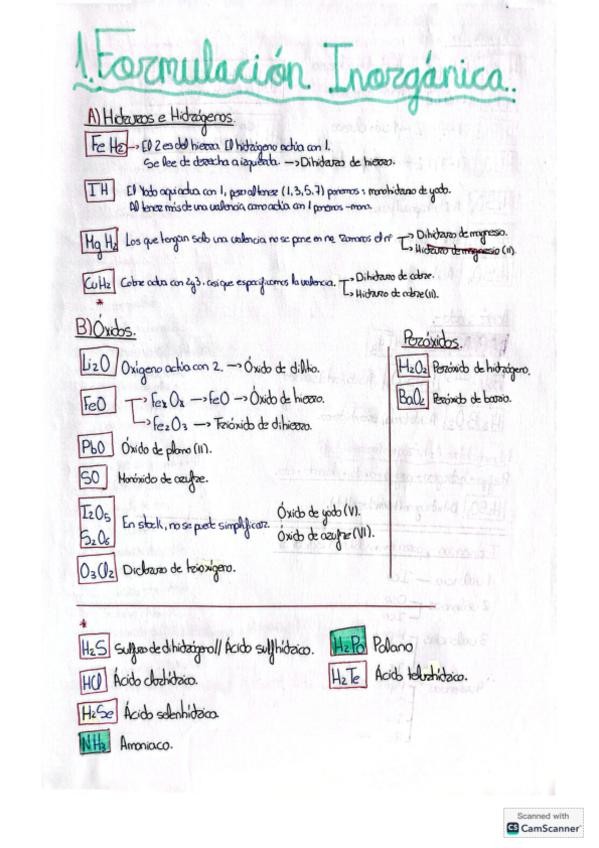 1. Formulación Inorgánica.
A) Hidruros e Hidrógenos.
FeH₂ → El 2 es del hierro. El hidrógeno actúa con 1.
Se lee de derecha a izquierda. → Dihidruro de hierro.
IH El Yodo aquí actúa con 1, pero al tener (1,3,5,7) ponemos: monohidruro de yodo.
Al tener más de una valencia como actúa con 1 ponemos -mono.
MgH₂ Los que tengan solo una valencia no se pone en nº romanos el nº → Dihidruro de magnesio.
→ Hidruro de magnesio (II).
CuH₂ Cobre actúa con 2 y 3. así que especificamos la valencia. → Dihidruro de cobre.
→ Hidruro de cobre (II).
*
B) Óxidos.
Li₂O Oxígeno actúa con 2. → Óxido de dilitio.
FeO → Fe₂O₂ → FeO → Óxido de hierro.
→ Fe₂O₃ → Trióxido de dihierro.
PbO Óxido de plomo (II).
SO Monóxido de azufre.
I₂O₅ Óxido de yodo (V).
En stock, no se puede simplificar.
S₂O₆ Óxido de azufre (VI).
O₃Cl₂ Dicloruro de trioxígeno.
Peróxidos.
H₂O₂ Peróxido de hidrógeno.
BaO₂ Peróxido de bario.
*
H₂S Sulfuro de dihidrógeno // Ácido sulfhídrico.
HCl Ácido clorhídrico.
H₂Se Ácido selenhídrico
NH₃ Amoniaco.
H₂Po Polano
H₂Te Ácido telurhídrico.
Scanned with
CS CamScanner